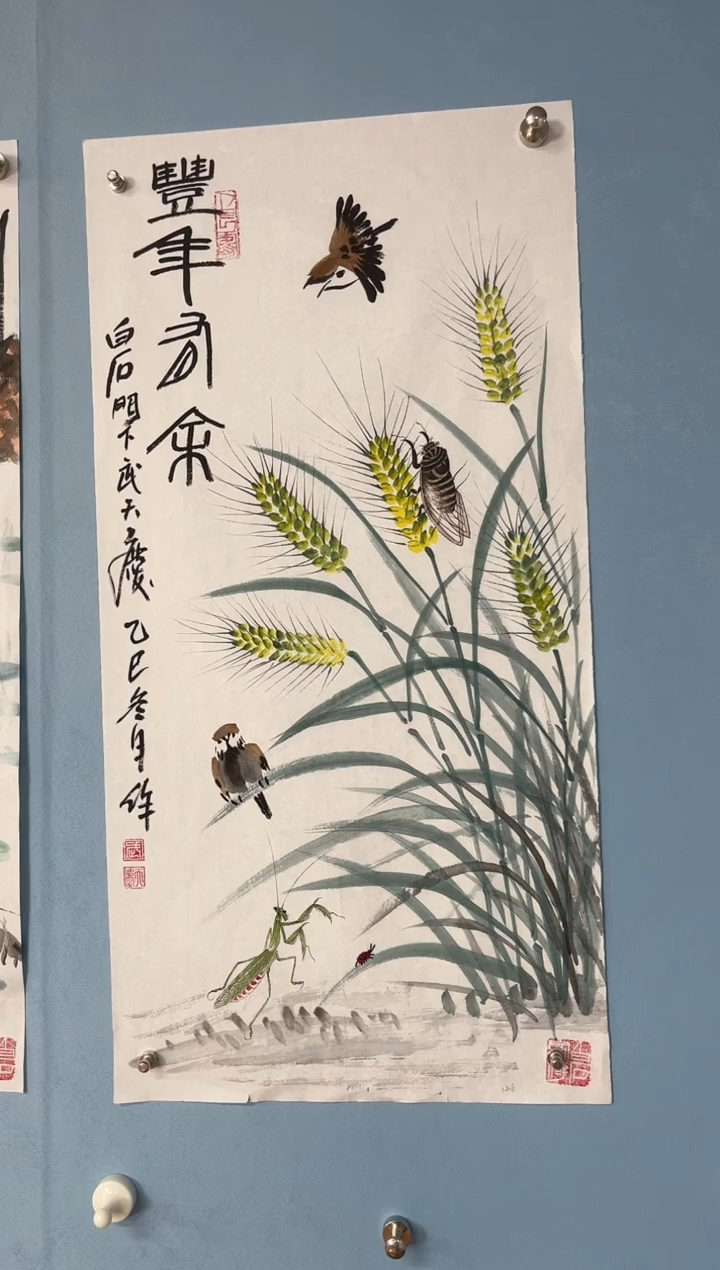 豐年有余
白石門下武天慶乙巳冬月作